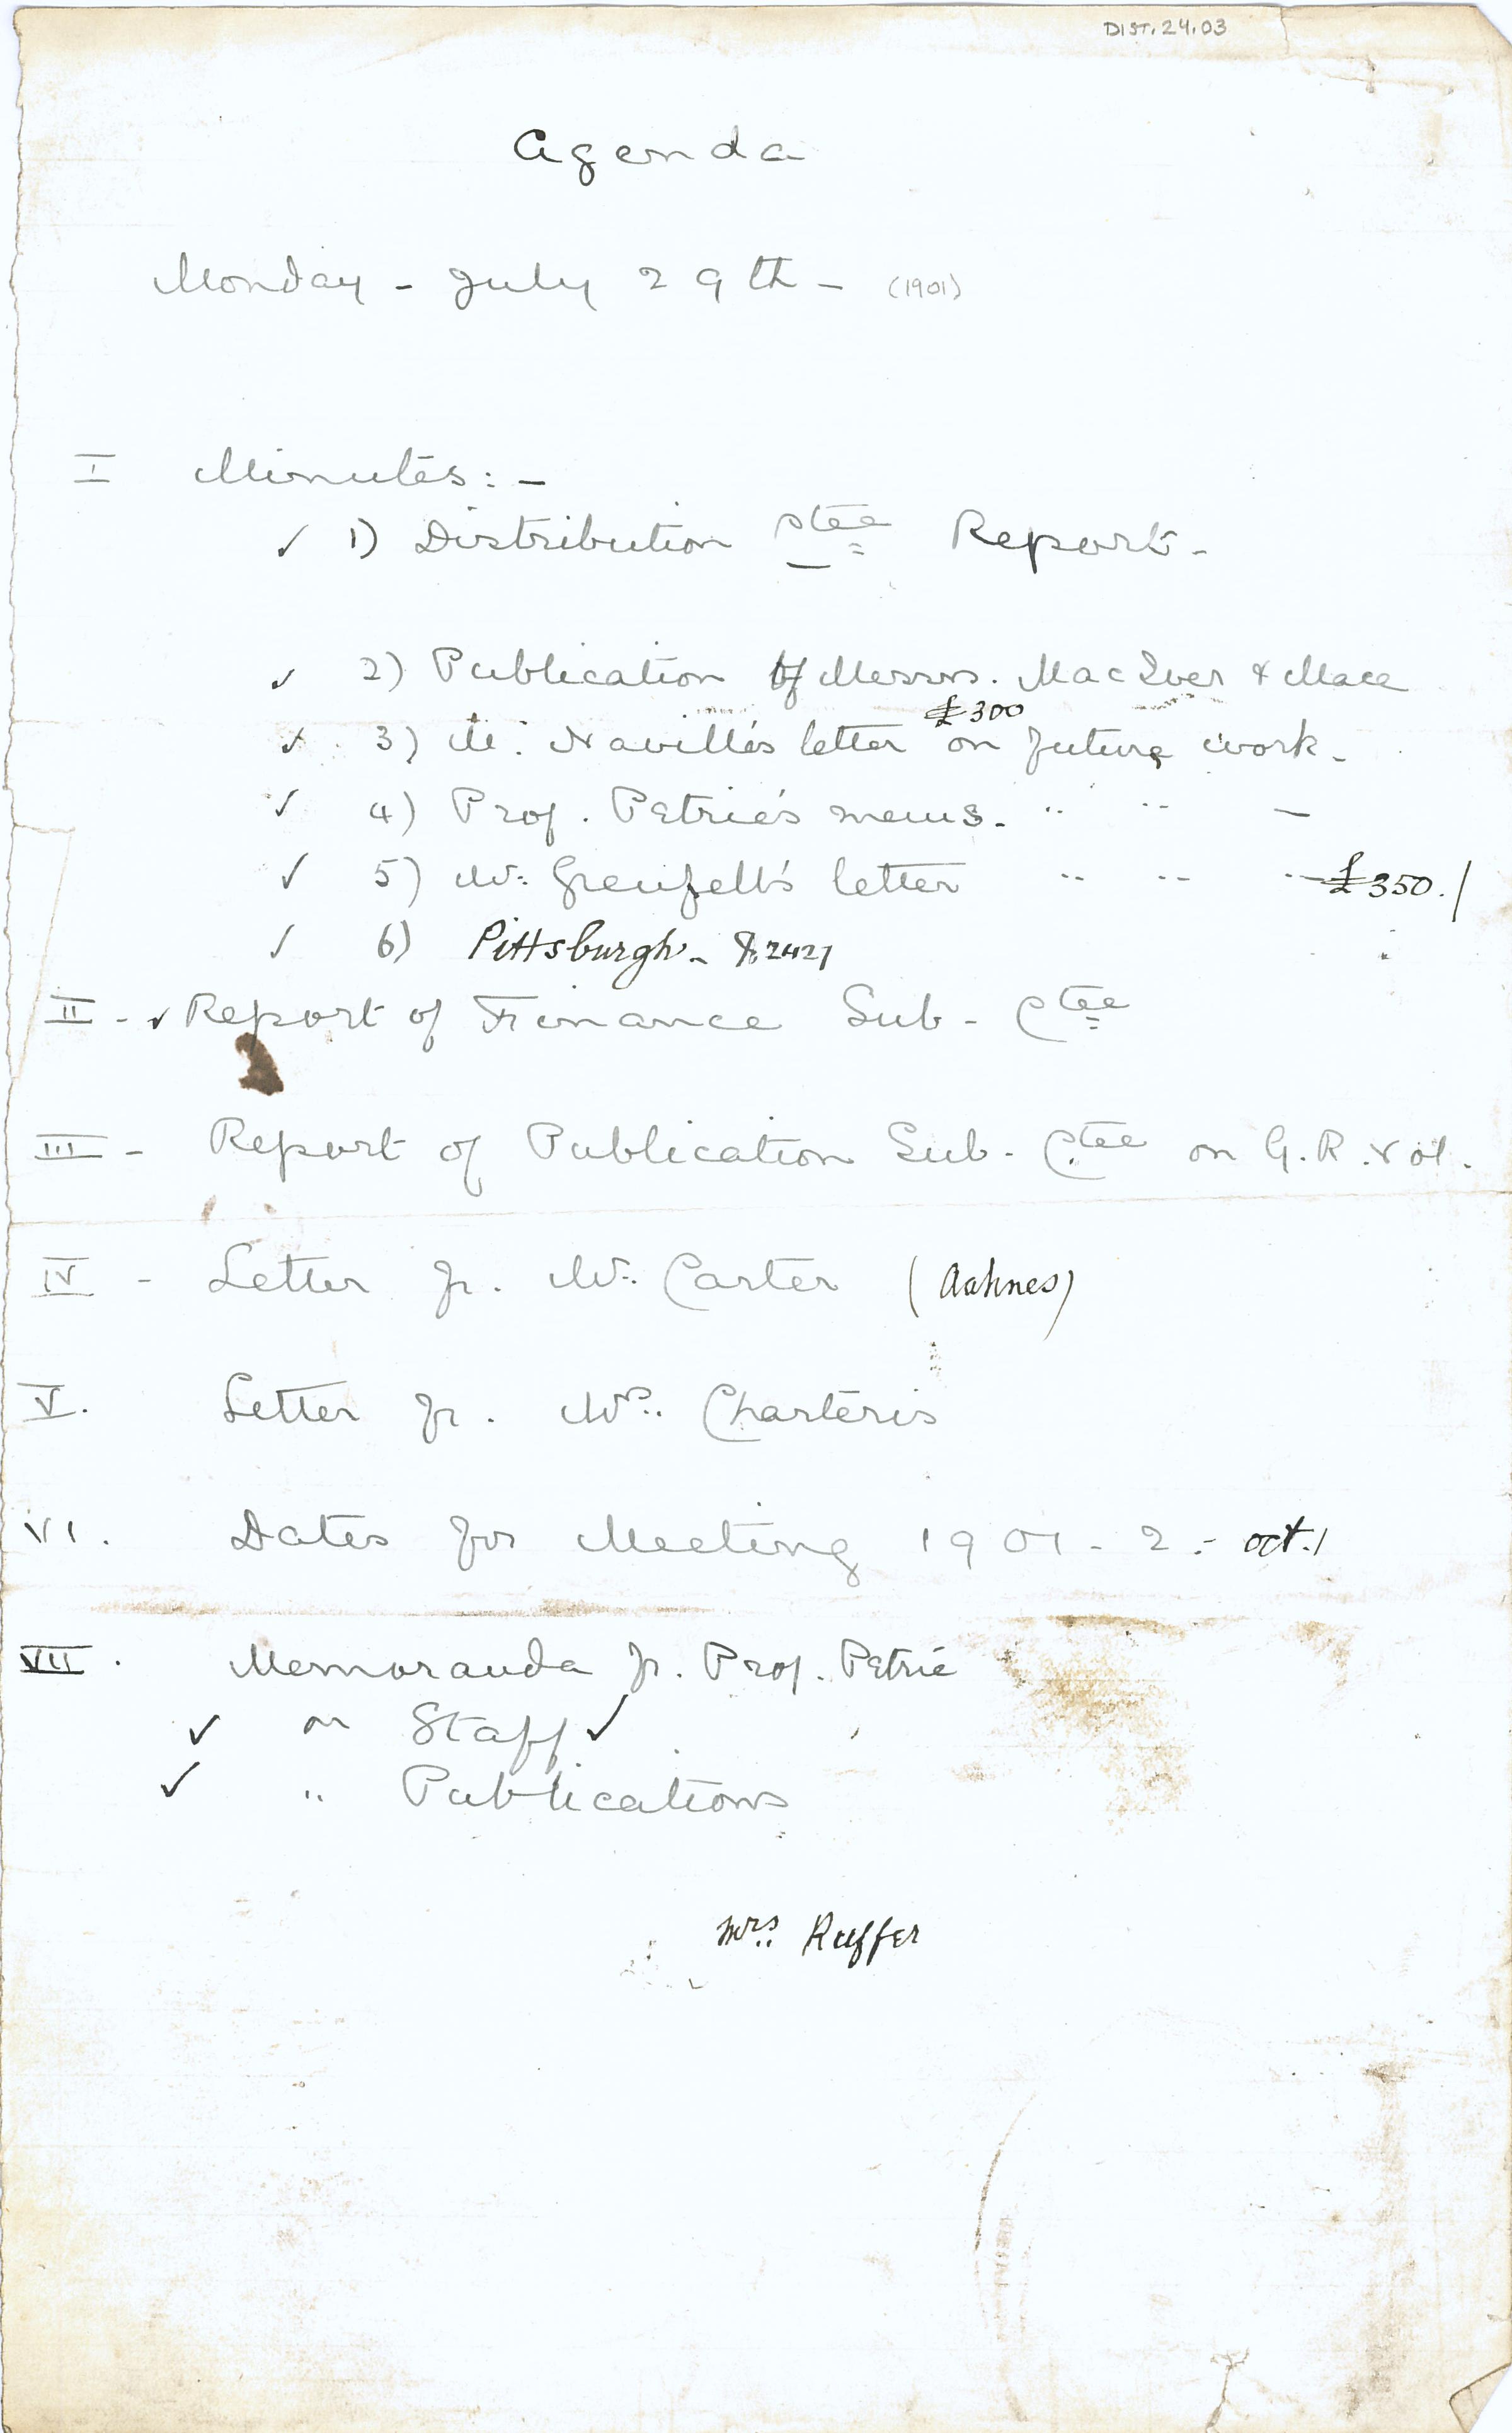 DIST.24.03
Agenda
Monday - July 29th - (1901)
I Minutes: -
✓ 1) Distribution Ctee Report -
✓ 2) Publication of Messrs. MacIver & Mace
£300
✓ 3) M. Naville's letter on future work -
✓ 4) Prof. Petrie's mems. " " -
✓ 5) Mr. Grenfell's letter " " " £350./
✓ 6) Pittsburgh -
II - ✓ Report of Finance Sub-Ctee
III - Report of Publication Sub-Ctee on G.R. Vol.
IV - Letter fr. Mr. Carter (Aahnes)
V. Letter fr. Mrs. Charteris
VI. Dates for Meeting 1901-2 - Oct. 1
VII. Memoranda fr. Prof. Petrie
✓ on Staff ✓
✓ " Publications
Mrs. Ruffer